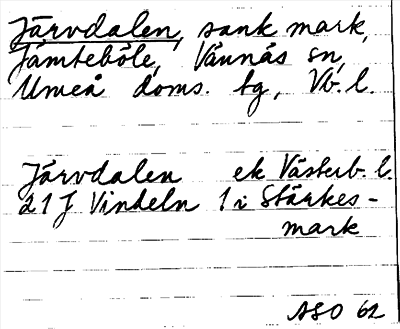 Järvdalen, sank mark,
Jämteböle, Vännäs sn,
Umeå doms. tg, Vb. l.
Järvdalen ek Västerb. l.
21 J Vindeln 1 i Stärkes-
mark
ASO 62